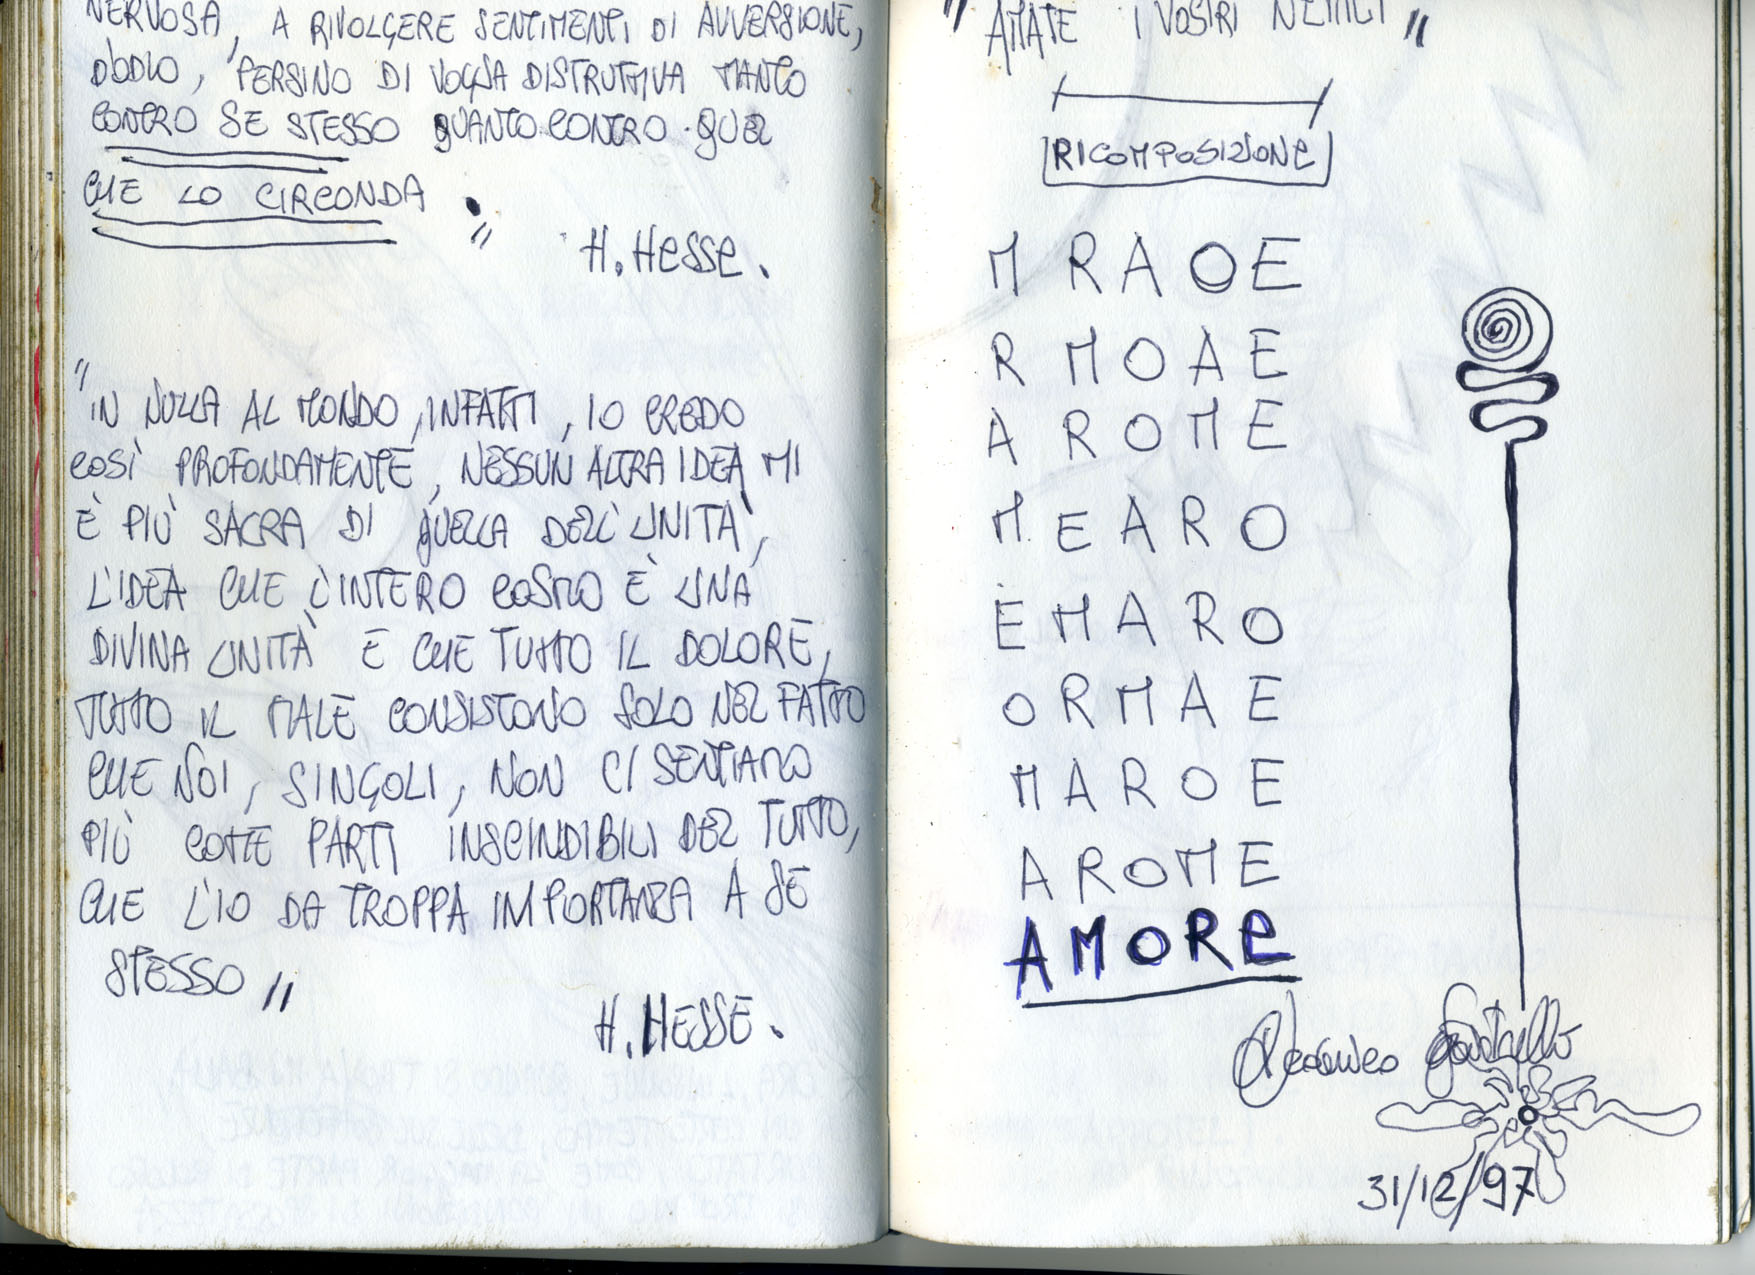 NERVOSA, A RIVOLGERE SENTIMENTI DI AVVERSIONE,
D'ODIO, PERSINO DI VOGLIA DISTRUTTIVA TANTO
CONTRO SE STESSO QUANTO CONTRO QUEL
CHE LO CIRCONDA."
H. HESSE.
"IN NULLA AL MONDO, INFATTI, IO CREDO
COSÌ PROFONDAMENTE, NESSUN ALTRA IDEA MI
È PIÙ SACRA DI QUELLA DELL'UNITÀ,
L'IDEA CHE L'INTERO COSMO È UNA
DIVINA UNITÀ E CHE TUTTO IL DOLORE,
TUTTO IL MALE CONSISTONO SOLO NEL FATTO
CHE NOI, SINGOLI, NON CI SENTIAMO
PIÙ COME PARTI INSCINDIBILI DEL TUTTO,
CHE L'IO DA TROPPA IMPORTANZA A SE
STESSO"
H. HESSE.
"AMATE I VOSTRI NEMICI"
RICOMPOSIZIONE
M R A O E
R M O A E
A R O M E
M E A R O
E M A R O
O R M A E
M A R O E
A R O M E
AMORE
31/12/97